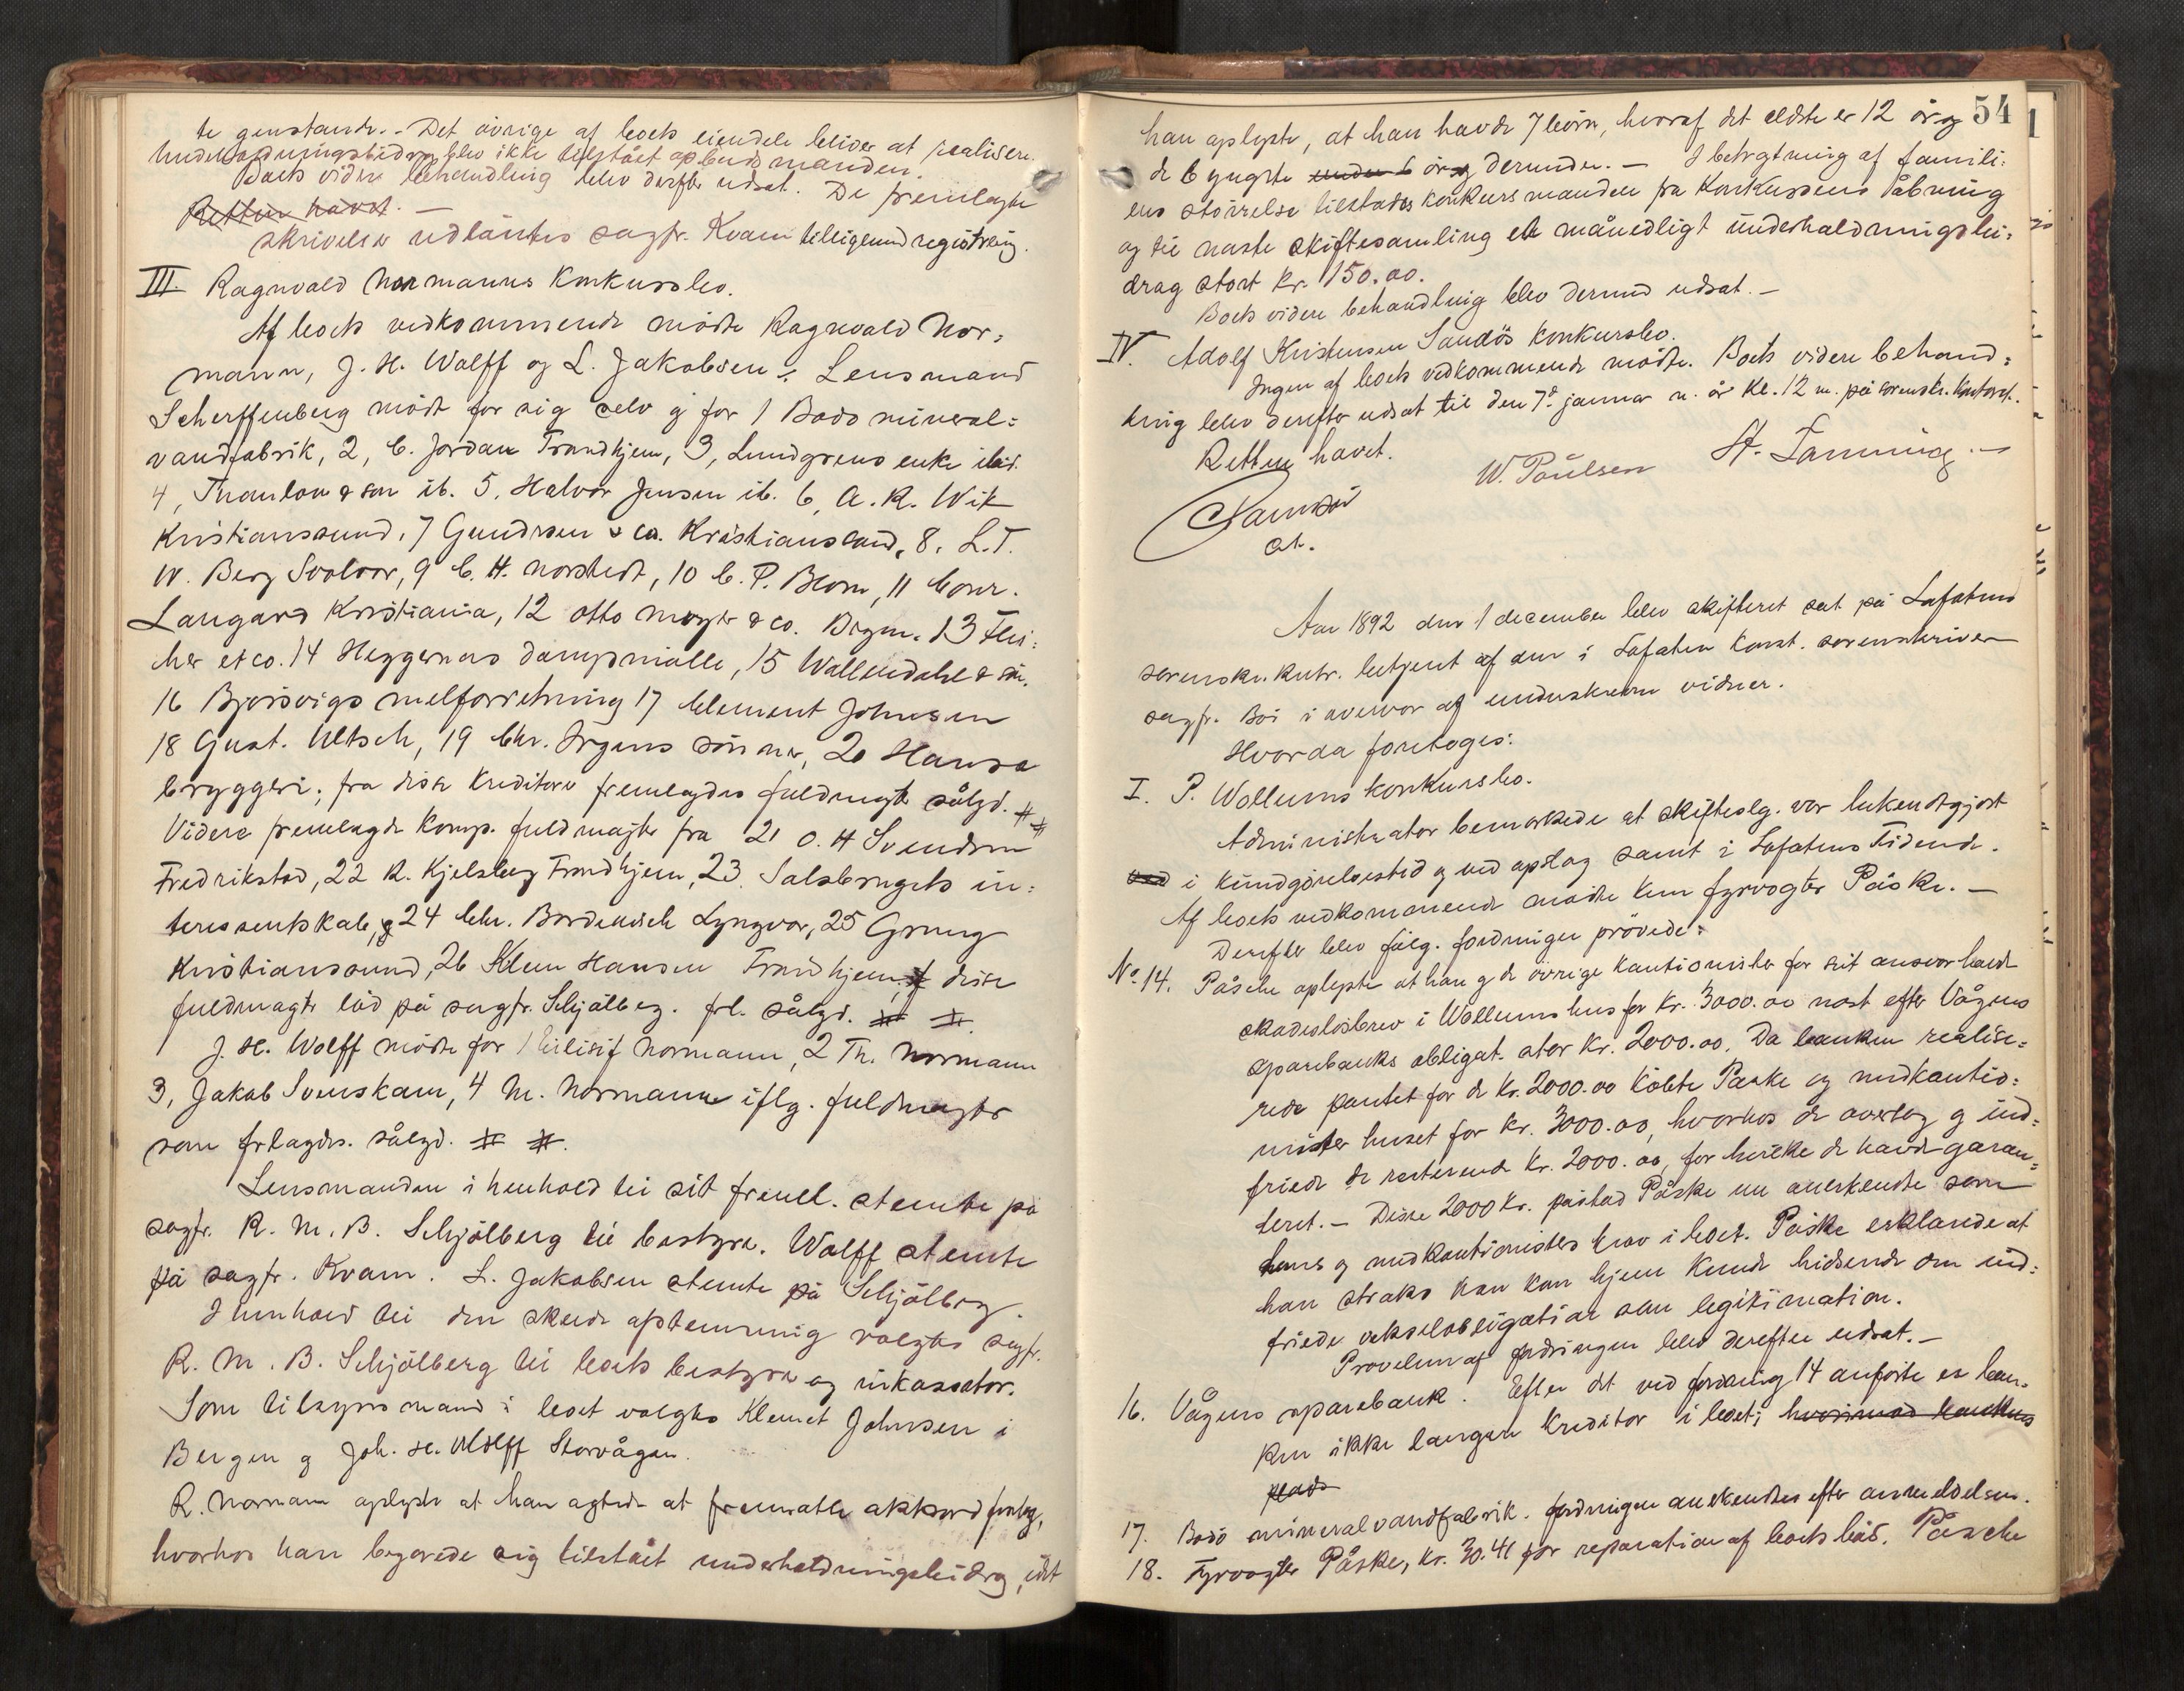 te genstande. - Det øvrige af boets eiendele bliver at realisere.
Underholdningsbidrag blev ikke tilstået opbudsmanden.
Boets videre behandling blev derefter udsat. De fremlagte
Retten hævet. —
skrivelser udlåntes sagfr. Kvam tilligemed registrering.
III. Ragnvald Normanns konkursbo.
Af boets vedkommende mødte Ragnvald Nor-
mann, J. H. Wolff og L. Jakobsen. Lensmand
Scherffenberg mødt for sig selv og for 1 Bodø mineral-
vandfabrik, 2, C. Jordan Trondhjem, 3, Lundgrens enke ibid.
4, Thaulow & søn ib. 5, Halvor Jensen ib. 6, A. K. Wik
Kristianssund, 7 Gundersen & co. Kristianssand, 8, L. T.
W. Berg Svolvær, 9 C. H. Norstedt, 10 C. P. Blom, 11 Conr.
Langård Kristiania, 12 Otto Meyer & co. Bergen. 13 Flei-
her et co. 14 Heggernes dampmølle, 15 Wallendahl & søn.
16 Bjørsvigs melforretning 17 Clement Johnsen
18 Gust. Ultsch, 19 Chr. Irgens sønner, 20 Hansa
bryggeri; fra disse kreditorer fremlagdes fuldmagter sålyd. # #
Videre fremlagde komp. fuldmagter fra 21 O. H Svendsen
Fredrikstad, 22 R. Kjelsberg Trondhjem, 23. Salsbrugets in-
teressentskab, & 24 Chr. Bordewich Lyngvær, 25 Grung
Kristianssund, 26 Klem Hansen Trondhjem, disse
fuldmagter lød på sagfr. Schjølberg. frl. sålyd. # #.
J. H. Wolff mødte for 1 Normann, 2 Th. Normann
3, Jakob Svenskam, 4 M. Normann iflg. fuldmagter
som frlagdes. sålyd. # #.
Lensmanden i henhold til sit freml. stemte på
sagfr. R. M. B. Schjølberg til bestyrer. Wolff stemte
på sagfr. Kvam. L. Jakobsen stemte på Schjølberg.
I henhold til den skede afstemning valgtes sagfr.
R. M. B. Schjølberg til boets bestyrer og inkassator.
Som tilsynsmand i boet valgtes Klemet Johnsen i
Bergen og Joh. H. Wolff Storvågen.
R. Normann oplyste at han agtede at fremsætte akkordforslag,
hvorhos han begærede sig tilstået underholdningsbidrag, idet
54
han oplyste, at han havde 7 børn, hvoraf det eldste er 12 år og
de 6 yngste under 6 år og derunder. — I betragtning af famili-
ens størrelse tilstodes konkursmanden fra konkursens åbning
og til næste skiftesamling et månedligt underholdningsbi-
drag stort kr. 150.00.
Boets videre behandling blev dermed udsat. —
IV. Adolf Kristensen Sandøs konkursbo.
Ingen af boets vedkommende mødte. Boets videre behand-
ling blev derefter udsat til den 7de januar n. år kl. 12 m. på sorenskr. kontoret.
Retten hævet.
W. Paulsen
H. Lanning. —
cst.
Aar 1892 den 1 december blev skifteret sat på Lofotens
sorenskr. kntr. betjent af den i Lofoten konst. sorenskriver
sagfr. Boi i overvær af underskrevne vidner.
Hvorda foretoges:
I. P. Wollums konkursbo.
Administrator bemærkede at skiftesaml. var bekendtgjort
ved i kundgørelsestid. og ved opslag samt i Lofotens Tidende.
Af boets vedkommende mødte kun fyrvogter Påske. —
Derefter blev følg. fordringer prøvede:
No. 14. Påsche oplyste at han og de øvrige kautionister for sit ansvar havde
skadesløsbrev i Wollums hus for kr. 3000.00 næst efter Vågens
sparebanks obligat. stor kr. 2000.00. Da banken realise-
rede pantet for de kr. 2000.00 købte Paske og medkautio-
nister huset for kr. 3000.00, hvorhos de overtog og ind-
friede de resterende kr. 2000.00, for hvilke de havde garan-
teret. — Disse 2000 kr. påstod Påske nu anerkendte som
hans og medkautionisters krav i boet. Påske erklærede at
han straks han kom hjem kunde hidsende den ind-
friede vekselobligation som legitimation.
Prøvelsen af fordringen blev derefter udsat. —
16. Vågens sparebank. Efter det ved fordring 14 anførte er ban-
ken ikke længere kreditor i boet; hvorimod bankens
plads
17. Bodø mineralvandfabrik. fordringen anerkendtes efter anmeldelsen.
18. Fyrvogter Påske, kr. 30.41 for reparation af boets båd. Påsche